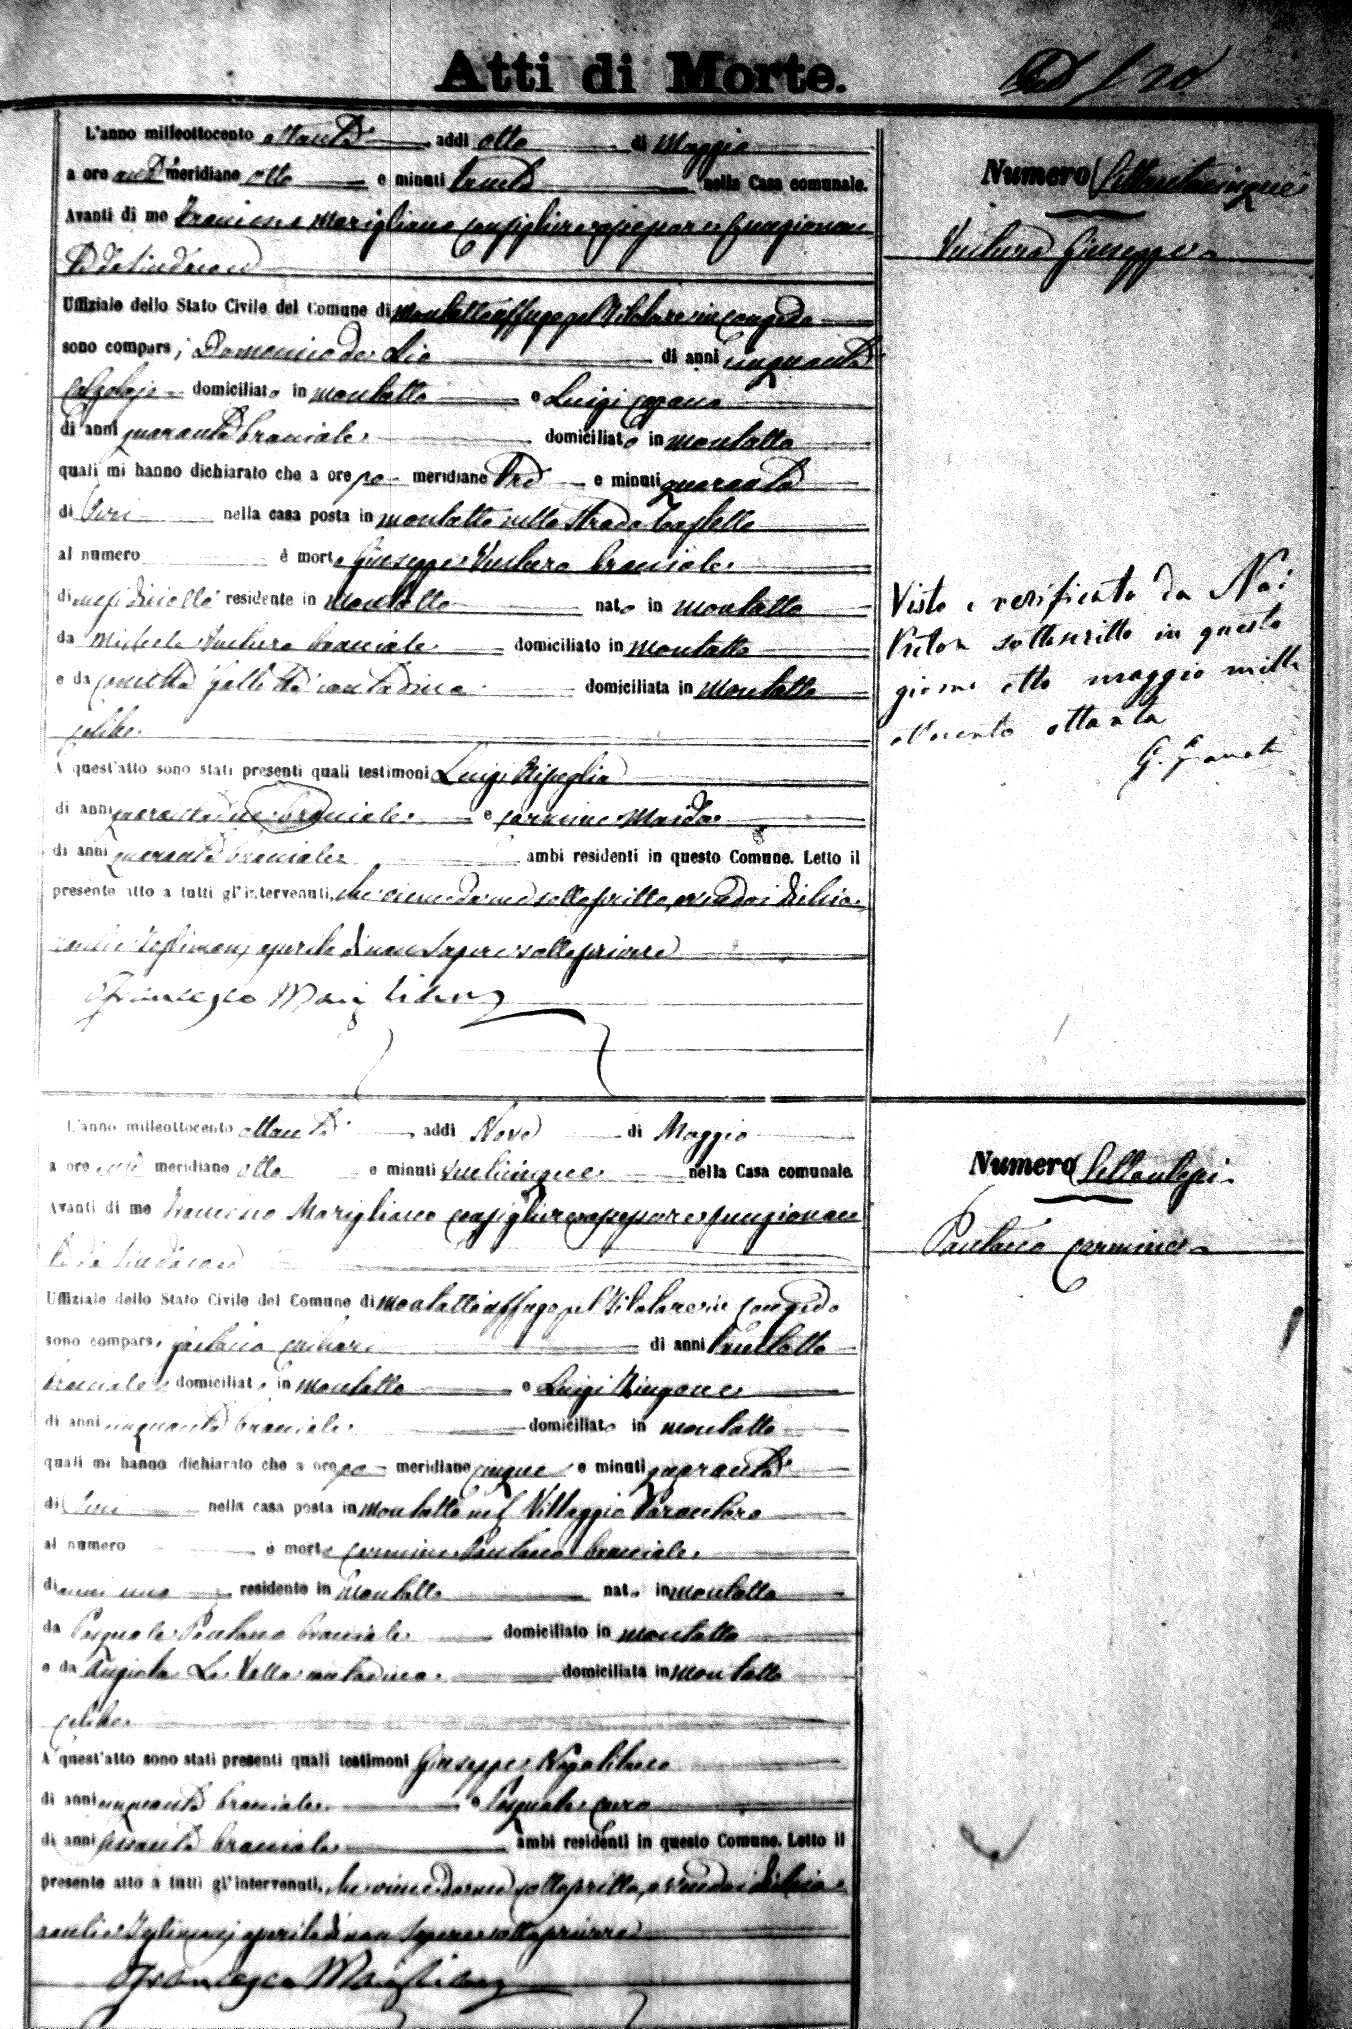 Atti di Morte.
20
L'anno milleottocento ottanta addì otto di Maggio
a ore anti meridiane otto e minuti trenta nella Casa comunale.
Avanti di me Francesco Marigliano consigliere assessore funzionan
te da Sindaco
Uffiziale dello Stato Civile del Comune di Montalto Uffugo pel Titolare in congedo
sono comparsi Domenico de Lio di anni cinquanta
calzolajo domiciliato in Montalto e Luigi
di anni quaranta bracciale domiciliato in Montalto
quali mi hanno dichiarato che a ore po meridiane tre e minuti quaranta
di jeri nella casa posta in Montalto nella Strada
al numero è morto Giuseppe Ventura bracciale
di mesi diciotto residente in Montalto nato in Montalto
da Michele Ventura bracciale domiciliato in Montalto
e da contadina domiciliata in Montalto
celibe
A quest'atto sono stati presenti quali testimoni Luigi
di anni quarantadue bracciale e Carmine Maida
di anni quaranta bracciale ambi residenti in questo Comune. Letto il
presente atto a tutti gl'intervenuti, che viene da me sottoscritto, avendo i dichia
ranti e testimonj asserito di non sapere sottoscrivere
Francesco Marigliano
Numero Settantacinque
Ventura Giuseppe
Visto e verificato da Noi
Pretore sottoscritto in questo
giorno otto maggio mille
ottocento ottanta
L'anno milleottocento ottanta addì Nove di Maggio
a ore anti meridiane otto e minuti venticinque nella Casa comunale.
Avanti di me Francesco Marigliano consigliere assessore funzionan
te da Sindaco
Uffiziale dello Stato Civile del Comune di Montalto Uffugo pel Titolare in congedo
sono comparsi Gaetano di anni trentotto
bracciale domiciliato in Montalto e Luigi
di anni cinquanta bracciale domiciliato in Montalto
quali mi hanno dichiarato che a ore po meridiane cinque e minuti quaranta
di jeri nella casa posta in Montalto nel Villaggio Parantoro
al numero è morto Carmine Pantano bracciale
di anni uno residente in Montalto nato in Montalto
da Pasquale Pantano bracciale domiciliato in Montalto
e da Angiola La Valle contadina domiciliata in Montalto
celibe
A quest'atto sono stati presenti quali testimoni Giuseppe Napolitano
di anni cinquanta bracciale e Pasquale
di anni sessanta bracciale ambi residenti in questo Comune. Letto il
presente atto a tutti gl'intervenuti, che viene da me sottoscritto, avendo i dichia
ranti e testimonj asserito di non sapere sottoscrivere
Francesco Marigliano
Numero Settantasei
Pantano Carmine